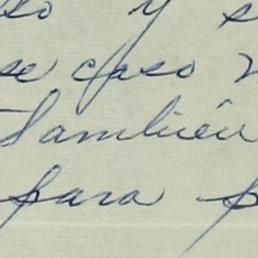 so y s
se caso
También
para p